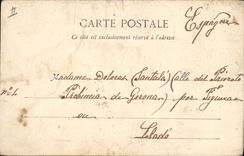 CARTE POSTALE
Ce côté est exclusivement réservé à l'adresse
Espagne
Madame Dolores (Santaló) Calle del
nº 4 Provincia de Gerona, por Figueras
ou
Lladó